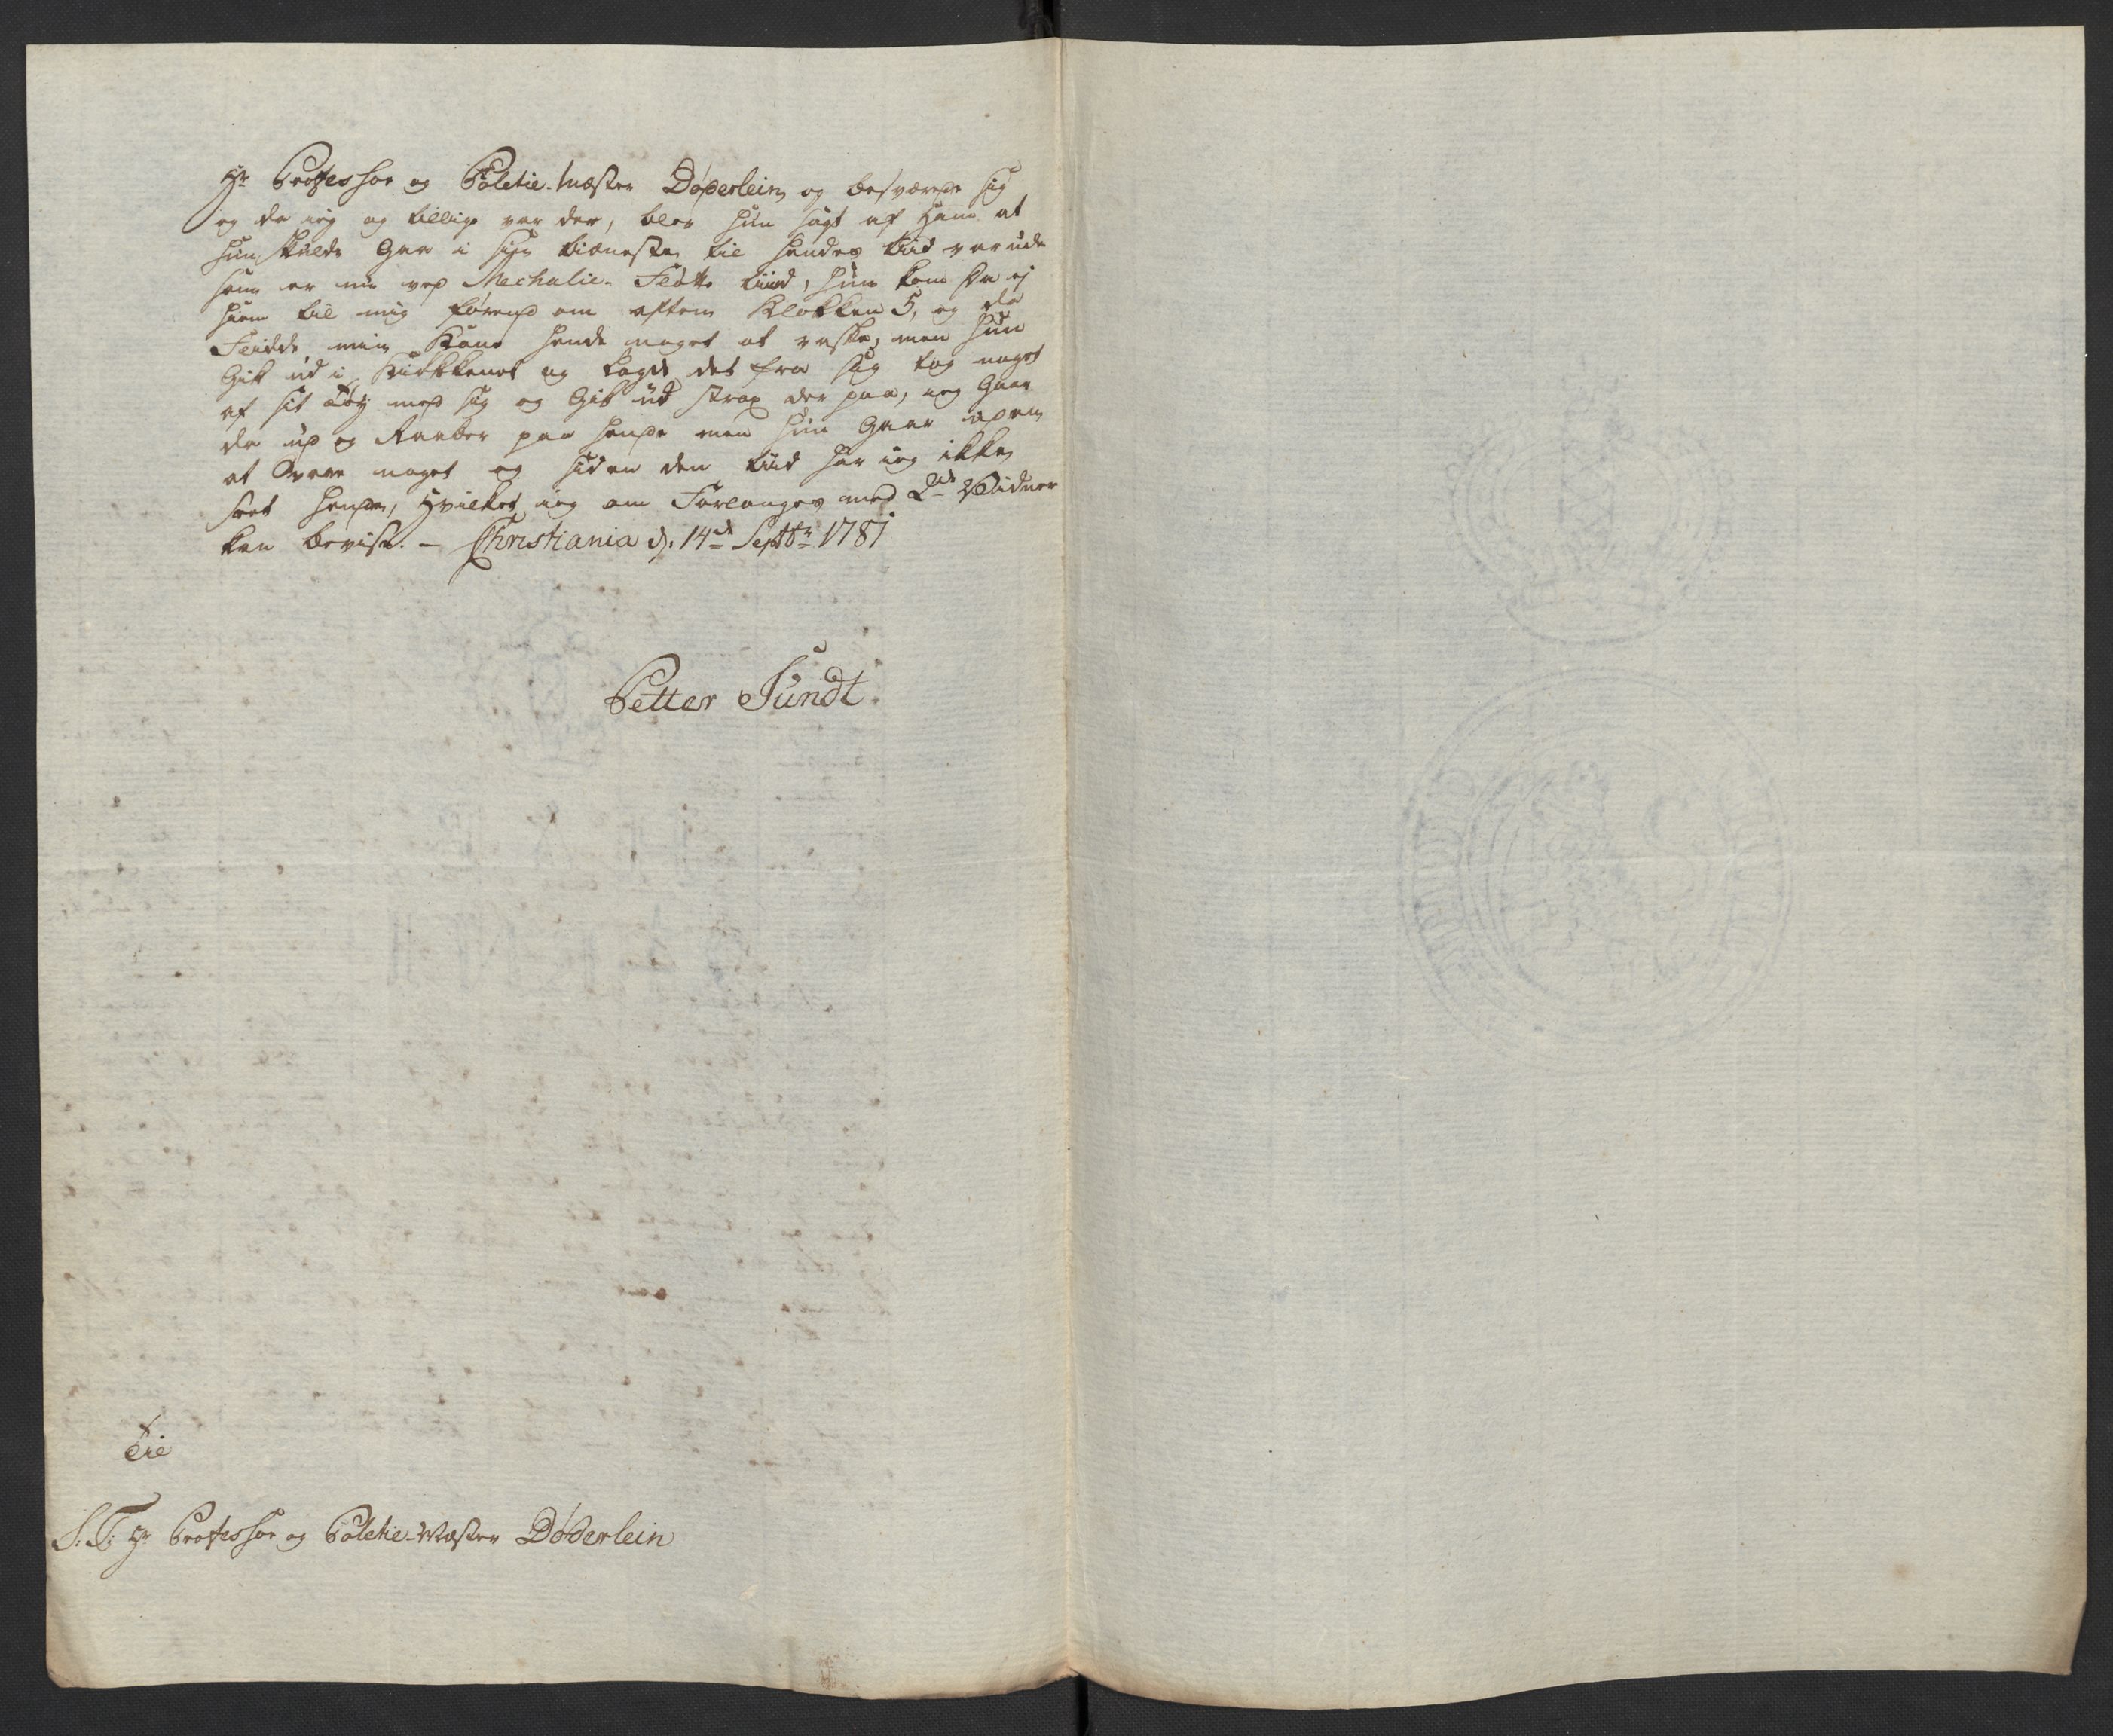 Hr Professor og Poletie-Mæster Døderlein og besværede sig
og da ieg og tillige var der, blev hun sagt af ham at
hun skulde Gaa i sin tieneste til hendes tiid var ude
som er nu ved Mechalie-Fløtte tiid, hun kom da ej
hiem til mig førend om aften Klokken 5, og da
min Kone hende noget at vaske, men hun
Gik ud i Kiøkkenet og lagde det fra sig tog noget
af sit Tøy med sig og Gik ud strax der paa, ieg Gaar
da ud og Raaber paa hende men hun Gaar uden
at Svare noget og siden den tiid har ieg ikke
seet hende, hvilket ieg om Forlanges med 2de Vidner
kan bevise. – Christiania d. 14de Septbr 1781
Petter Sundt
Til
S. T. Hr Professor og Poletie-Mæster Døderlein